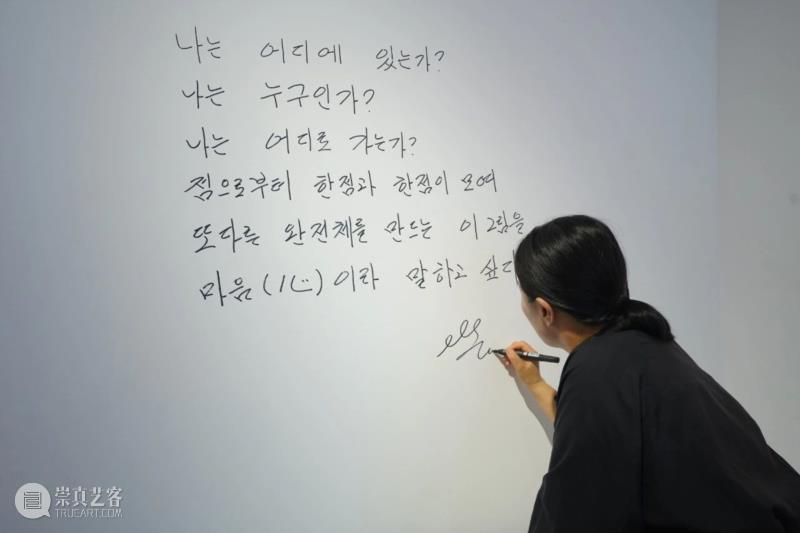 나는 어디에 있는가?
나는 누구인가?
나는 어디로 가는가?
점으로부터 한점과 한점이 모여
또다른 완전체를 만드는 이 그림을
마음(心)이라 말하고 싶다
崇真艺客
TRUEART.COM